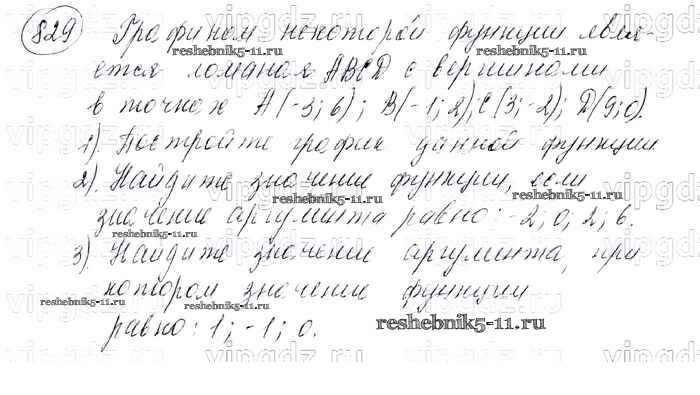 829 Графиком некоторой функции явля-
ется ломаная ABCD с вершинами
в точках A(-3; 6); B(-1; 2); C(3; -2); D(9; 0).
1) Постройте график данной функции
2). Найдите значение функции, если
значение аргумента равно: -2; 0; 2; 6.
3). Найдите значение аргумента, при
котором значение функции
равно: 1; -1; 0.
reshebnik5-11.ru
reshebnik5-11.ru
reshebnik5-11.ru
reshebnik5-11.ru
reshebnik5-11.ru
reshebnik5-11.ru
reshebnik5-11.ru